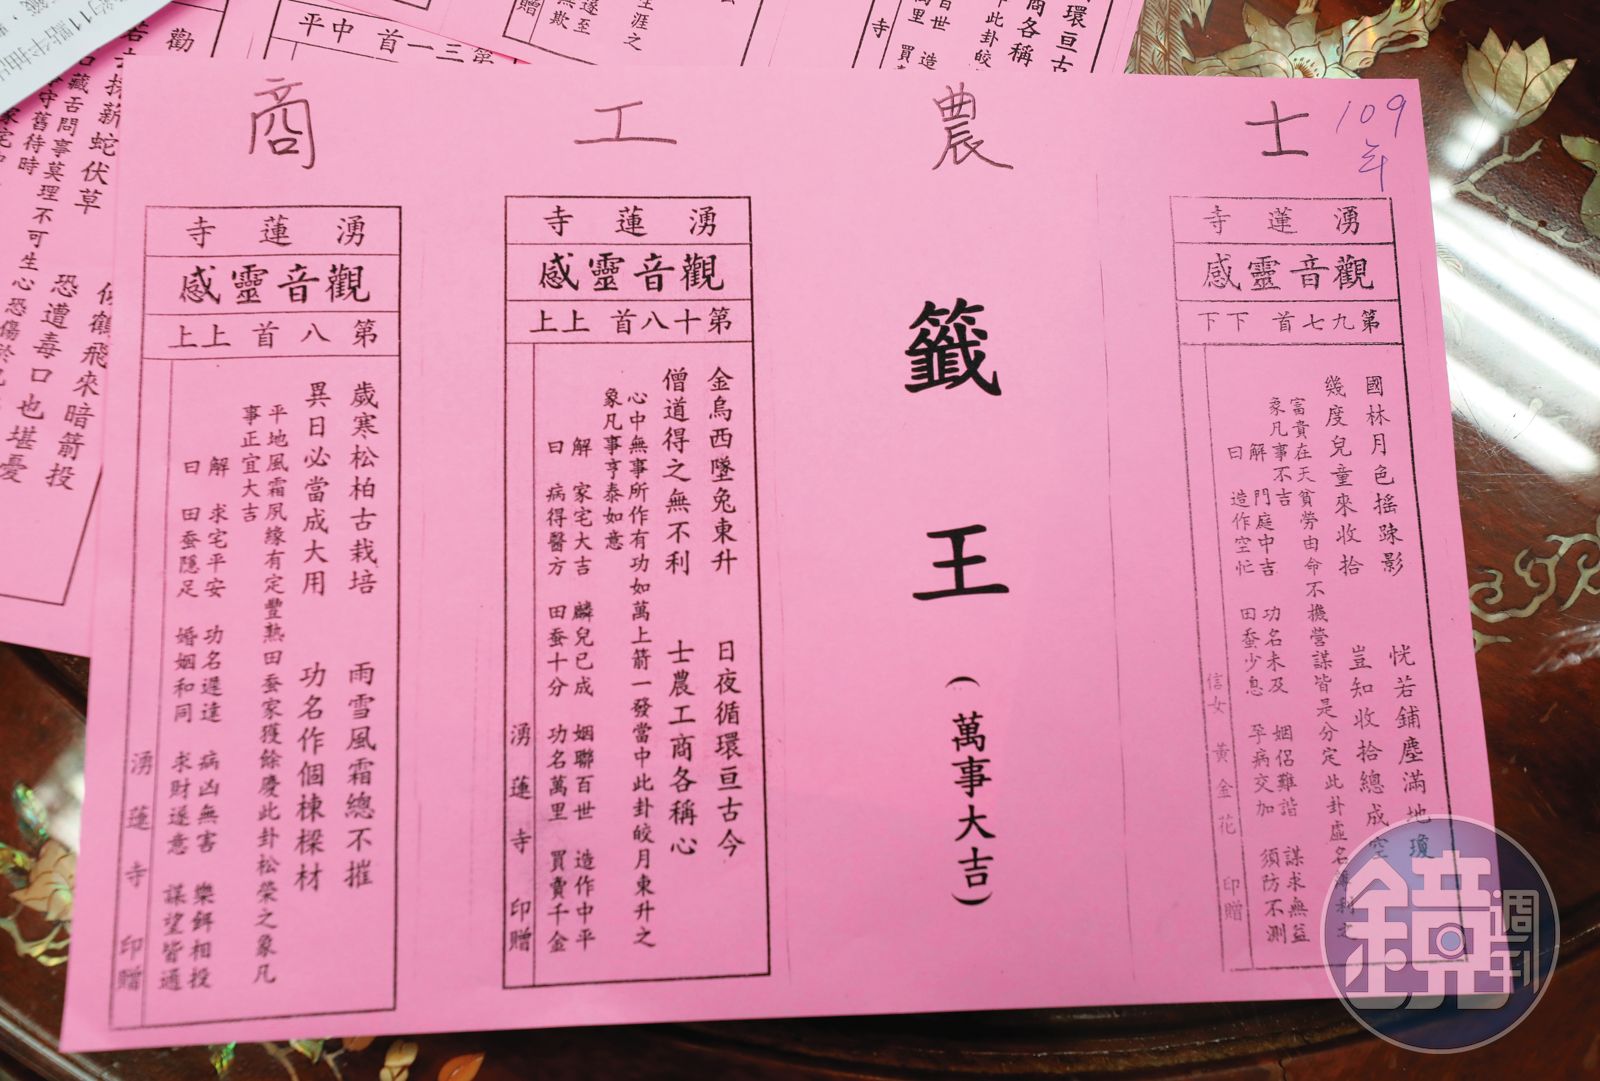 109
年
士
農
工
商
湧蓮寺
觀音靈感
第九七首 下下
國林月色搖踈影
恍若鋪塵滿地瓊
幾度兒童來收拾
豈知收拾總成空
富貴在天貧勞由命不機營謀皆是分定此卦虛名薄利之
象凡事不吉
解 門庭中吉 功名未及 姻侶難諧 謀求無益
曰 造作空忙 田蚕少息 孕病交加 須防不測
信女 黃金花 印贈
籤王(萬事大吉)
湧蓮寺
觀音靈感
第十八首 上上
金烏西墜兔東升
日夜循環亘古今
僧道得之無不利
士農工商各稱心
心中無事所作有功如萬上箭一發當中此卦皎月東升之
象凡事亨泰如意
解 家宅大吉 麟兒已成 姻聯百世 造作中平
曰 病得醫方 田蚕十分 功名萬里 買賣千金
湧蓮寺 印贈
湧蓮寺
觀音靈感
第八首 上上
歲寒松柏古栽培
雨雪風霜總不摧
異日必當成大用
功名作個棟樑材
平地風霜夙緣有定豐熟田蚕家獲餘慶此卦松榮之象凡
事正宜大吉
解 求宅平安 功名遲達 病凶無害 樂餌相投
曰 田蚕隱足 婚姻和同 求財遂意 謀望皆通
湧蓮寺 印贈
第三一首 中平
勸
採薪蛇伏草
口藏舌問事莫理不可生心
守舊待時
鶴飛來暗箭投
恐遭毒口也堪憂
環亘古
商各稱
此卦皎
百世 造
萬里 買
寺
生涯之
遂至
無欺
贈
鏡週刊